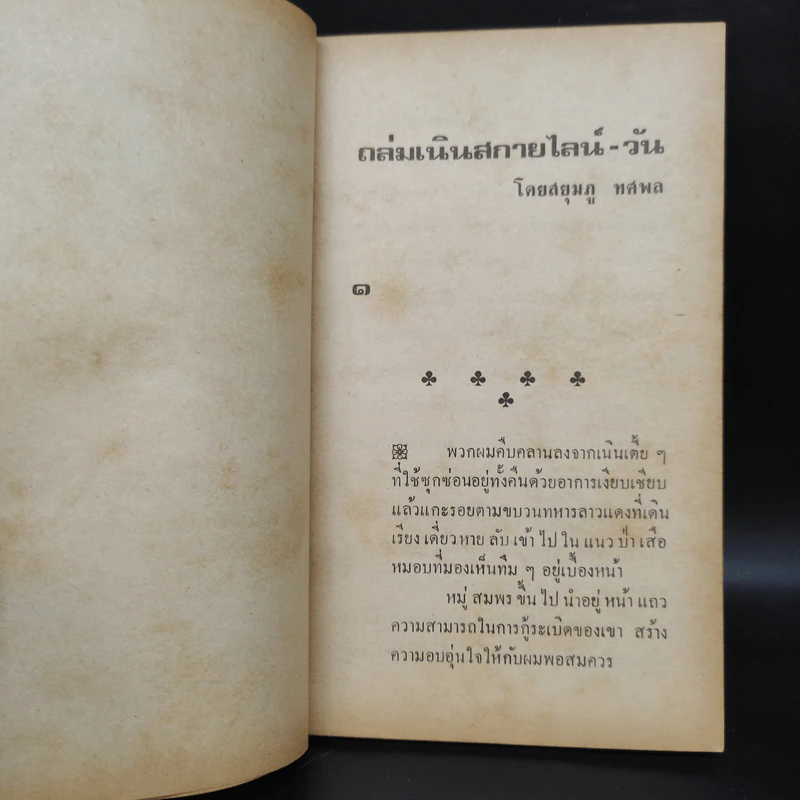 ถล่มเนินสกายไลน์-วัน
โดยสยุมภู ทศพล
๑
พวกผมคืบคลานลงจากเนินเตี้ย ๆ
ที่ใช้ซุกซ่อนอยู่ทั้งคืนด้วยอาการเงียบเชียบ
แล้วแกะรอยตามขบวนทหารลาวแดงที่เดิน
เรียงเดี่ยวหายลับเข้าไปในแนวป่าเสือ
หมอบที่มองเห็นทึม ๆ อยู่เบื้องหน้า
หมู่สมพรขึ้นไปนำอยู่หน้าแถว
ความสามารถในการกู้ระเบิดของเขา สร้าง
ความอบอุ่นใจให้กับผมพอสมควร